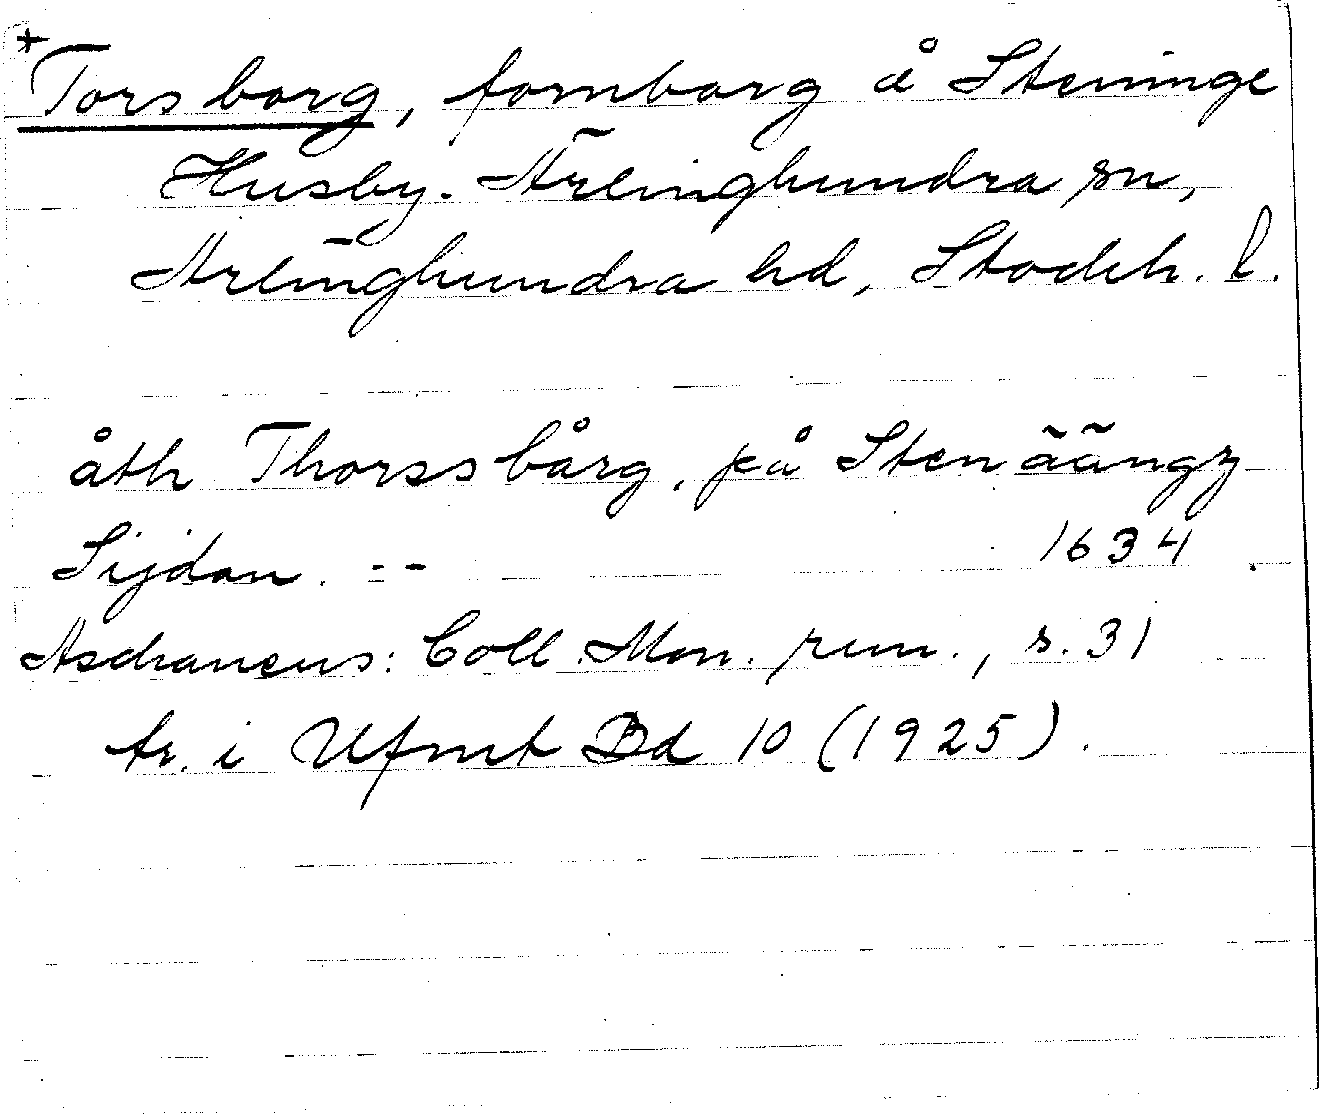 +
Torsborg, fornborg å Steninge
Husby-Ärlinghundra sn,
Ärlinghundra hd, Stockh. l.
åth Thorssbårg, på Stenäängz
Sijdan. -- 1634.
Aschaneus: Coll. Mon. run., s. 31
tr. i Ufmt Bd 10 (1925).